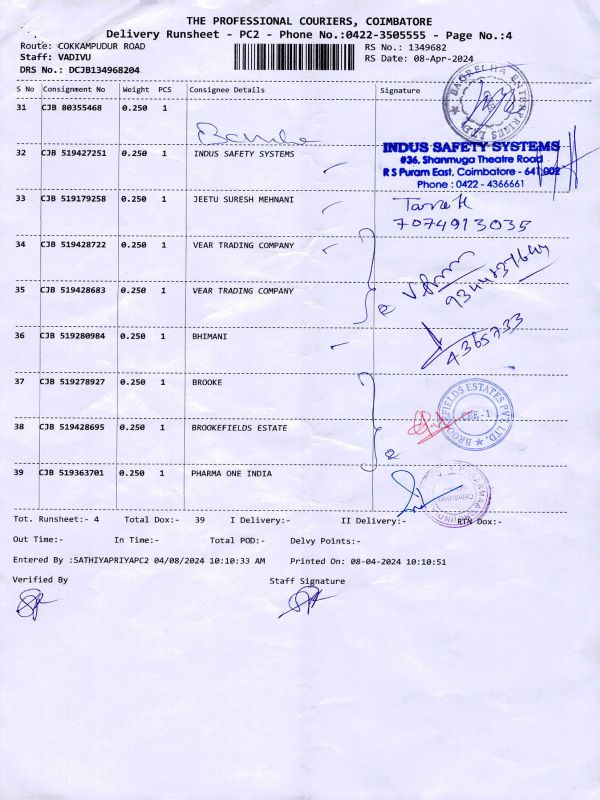 THE PROFESSIONAL COURIERS, COIMBATORE
Delivery Runsheet - PC2 - Phone No.:0422-3505555 - Page No.:4
Route: COKKAMPUDUR ROAD RS No.: 1349682
Staff: VADIVU RS Date: 08-Apr-2024
DRS No.: DCJB134968204
S No Consignment No Weight PCS Consignee Details Signature
31 CJB 80355468 0.250 1
BAGRECHA ENTERPRISES
32 CJB 519427251 0.250 1 INDUS SAFETY SYSTEMS
INDUS SAFETY SYSTEMS
#36, Shanmuga Theatre Road
R S Puram East, Coimbatore - 641 002
Phone : 0422 - 4366661
33 CJB 519179258 0.250 1 JEETU SURESH MEHNANI
7074913035
34 CJB 519428722 0.250 1 VEAR TRADING COMPANY
35 CJB 519428683 0.250 1 VEAR TRADING COMPANY
36 CJB 519280984 0.250 1 BHIMANI
4365733
37 CJB 519278927 0.250 1 BROOKE
38 CJB 519428695 0.250 1 BROOKEFIELDS ESTATE
BROOKEFIELDS ESTATES PVT. LTD.
CBE - 1
39 CJB 519363701 0.250 1 PHARMA ONE INDIA
Coimbatore
Tot. Runsheet:- 4 Total Dox:- 39 I Delivery:- II Delivery:- RTN Dox:-
Out Time:- In Time:- Total POD:- Delvy Points:-
Entered By :SATHIYAPRIYAPC2 04/08/2024 10:10:33 AM Printed On: 08-04-2024 10:10:51
Verified By Staff Signature